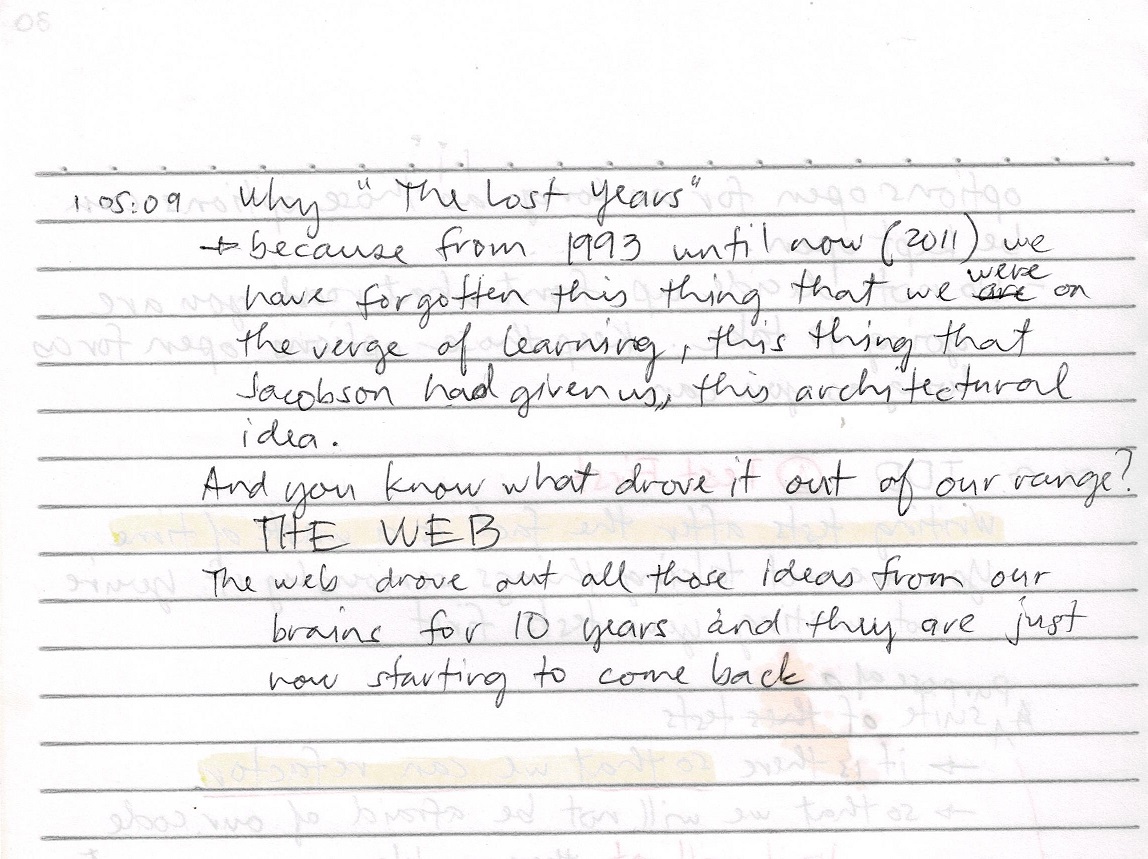 1:05:09 Why "The Lost Years"
→ because from 1993 until now (2011) we
have forgotten this thing that we were on
the verge of learning, this thing that
Jacobson had given us, this architectural
idea.
And you know what drove it out of our range?
THE WEB
The web drove out all those ideas from our
brains for 10 years and they are just
now starting to come back